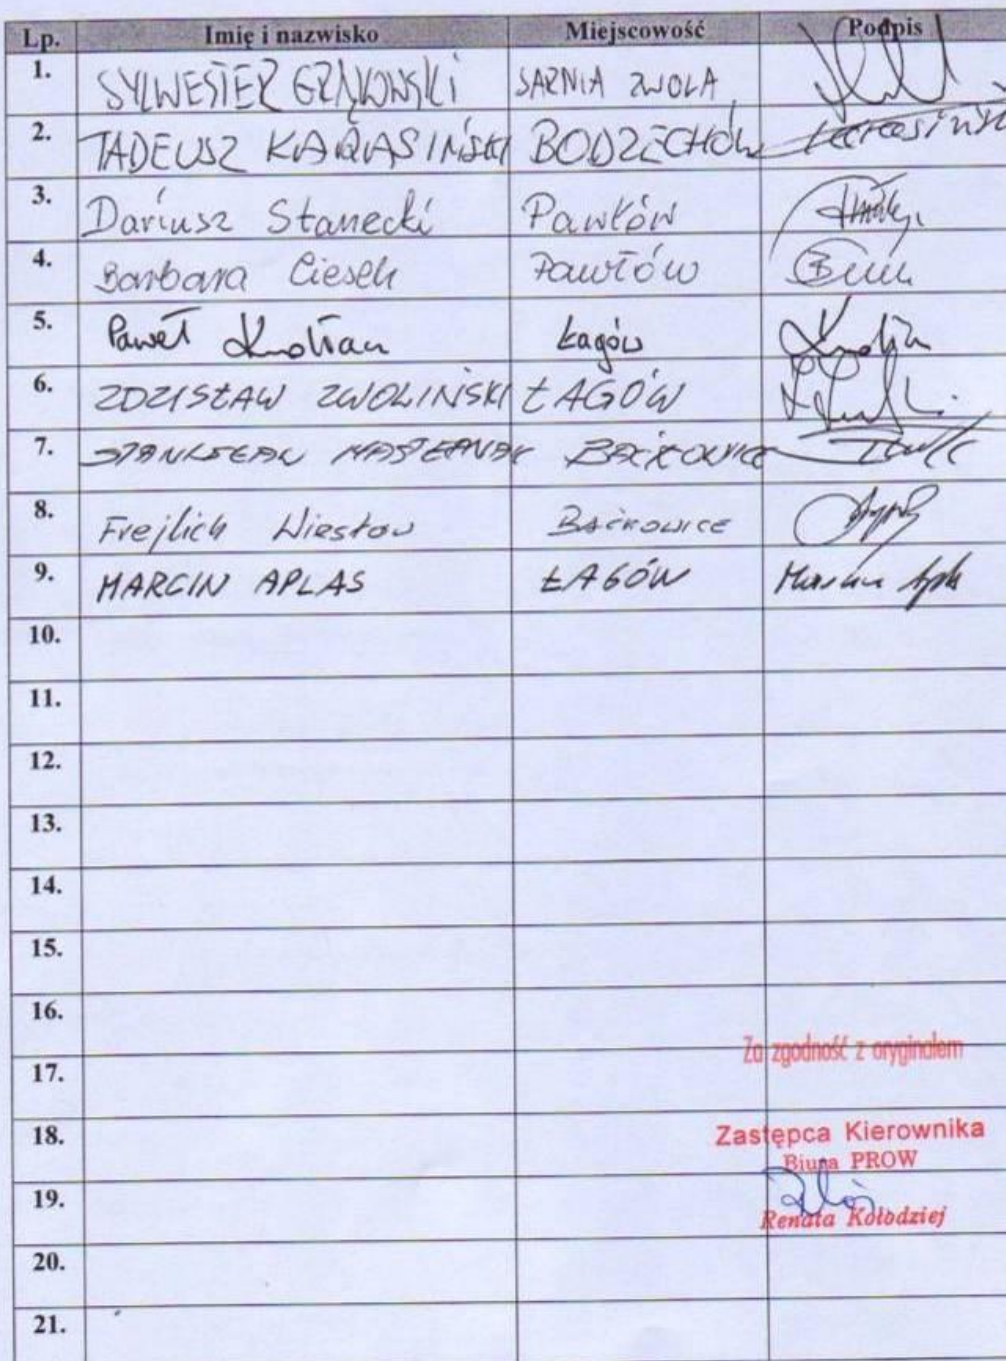 Lp. Imię i nazwisko Miejscowość Podpis
1. SYLWESTER GRĄKOWSKI SARNIA ZWOLA
2. TADEUSZ KARASIŃSKI BODZECHÓW
3. Dariusz Stanecki Pawłów
4. Barbara Ciesek Pawłów
5. Paweł Łagów
6. ZDZISŁAW ZWOLIŃSKI ŁAGÓW
7. STANISŁAW MASTERNAK BAĆKOWICE
8. Frejlich Wiesław BAĆKOWICE
9. MARCIN APLAS ŁAGÓW
10.
11.
12.
13.
14.
15.
16.
Za zgodność z oryginałem
17.
18. Zastępca Kierownika
Biura PROW
19. Renata Kołodziej
20.
21.